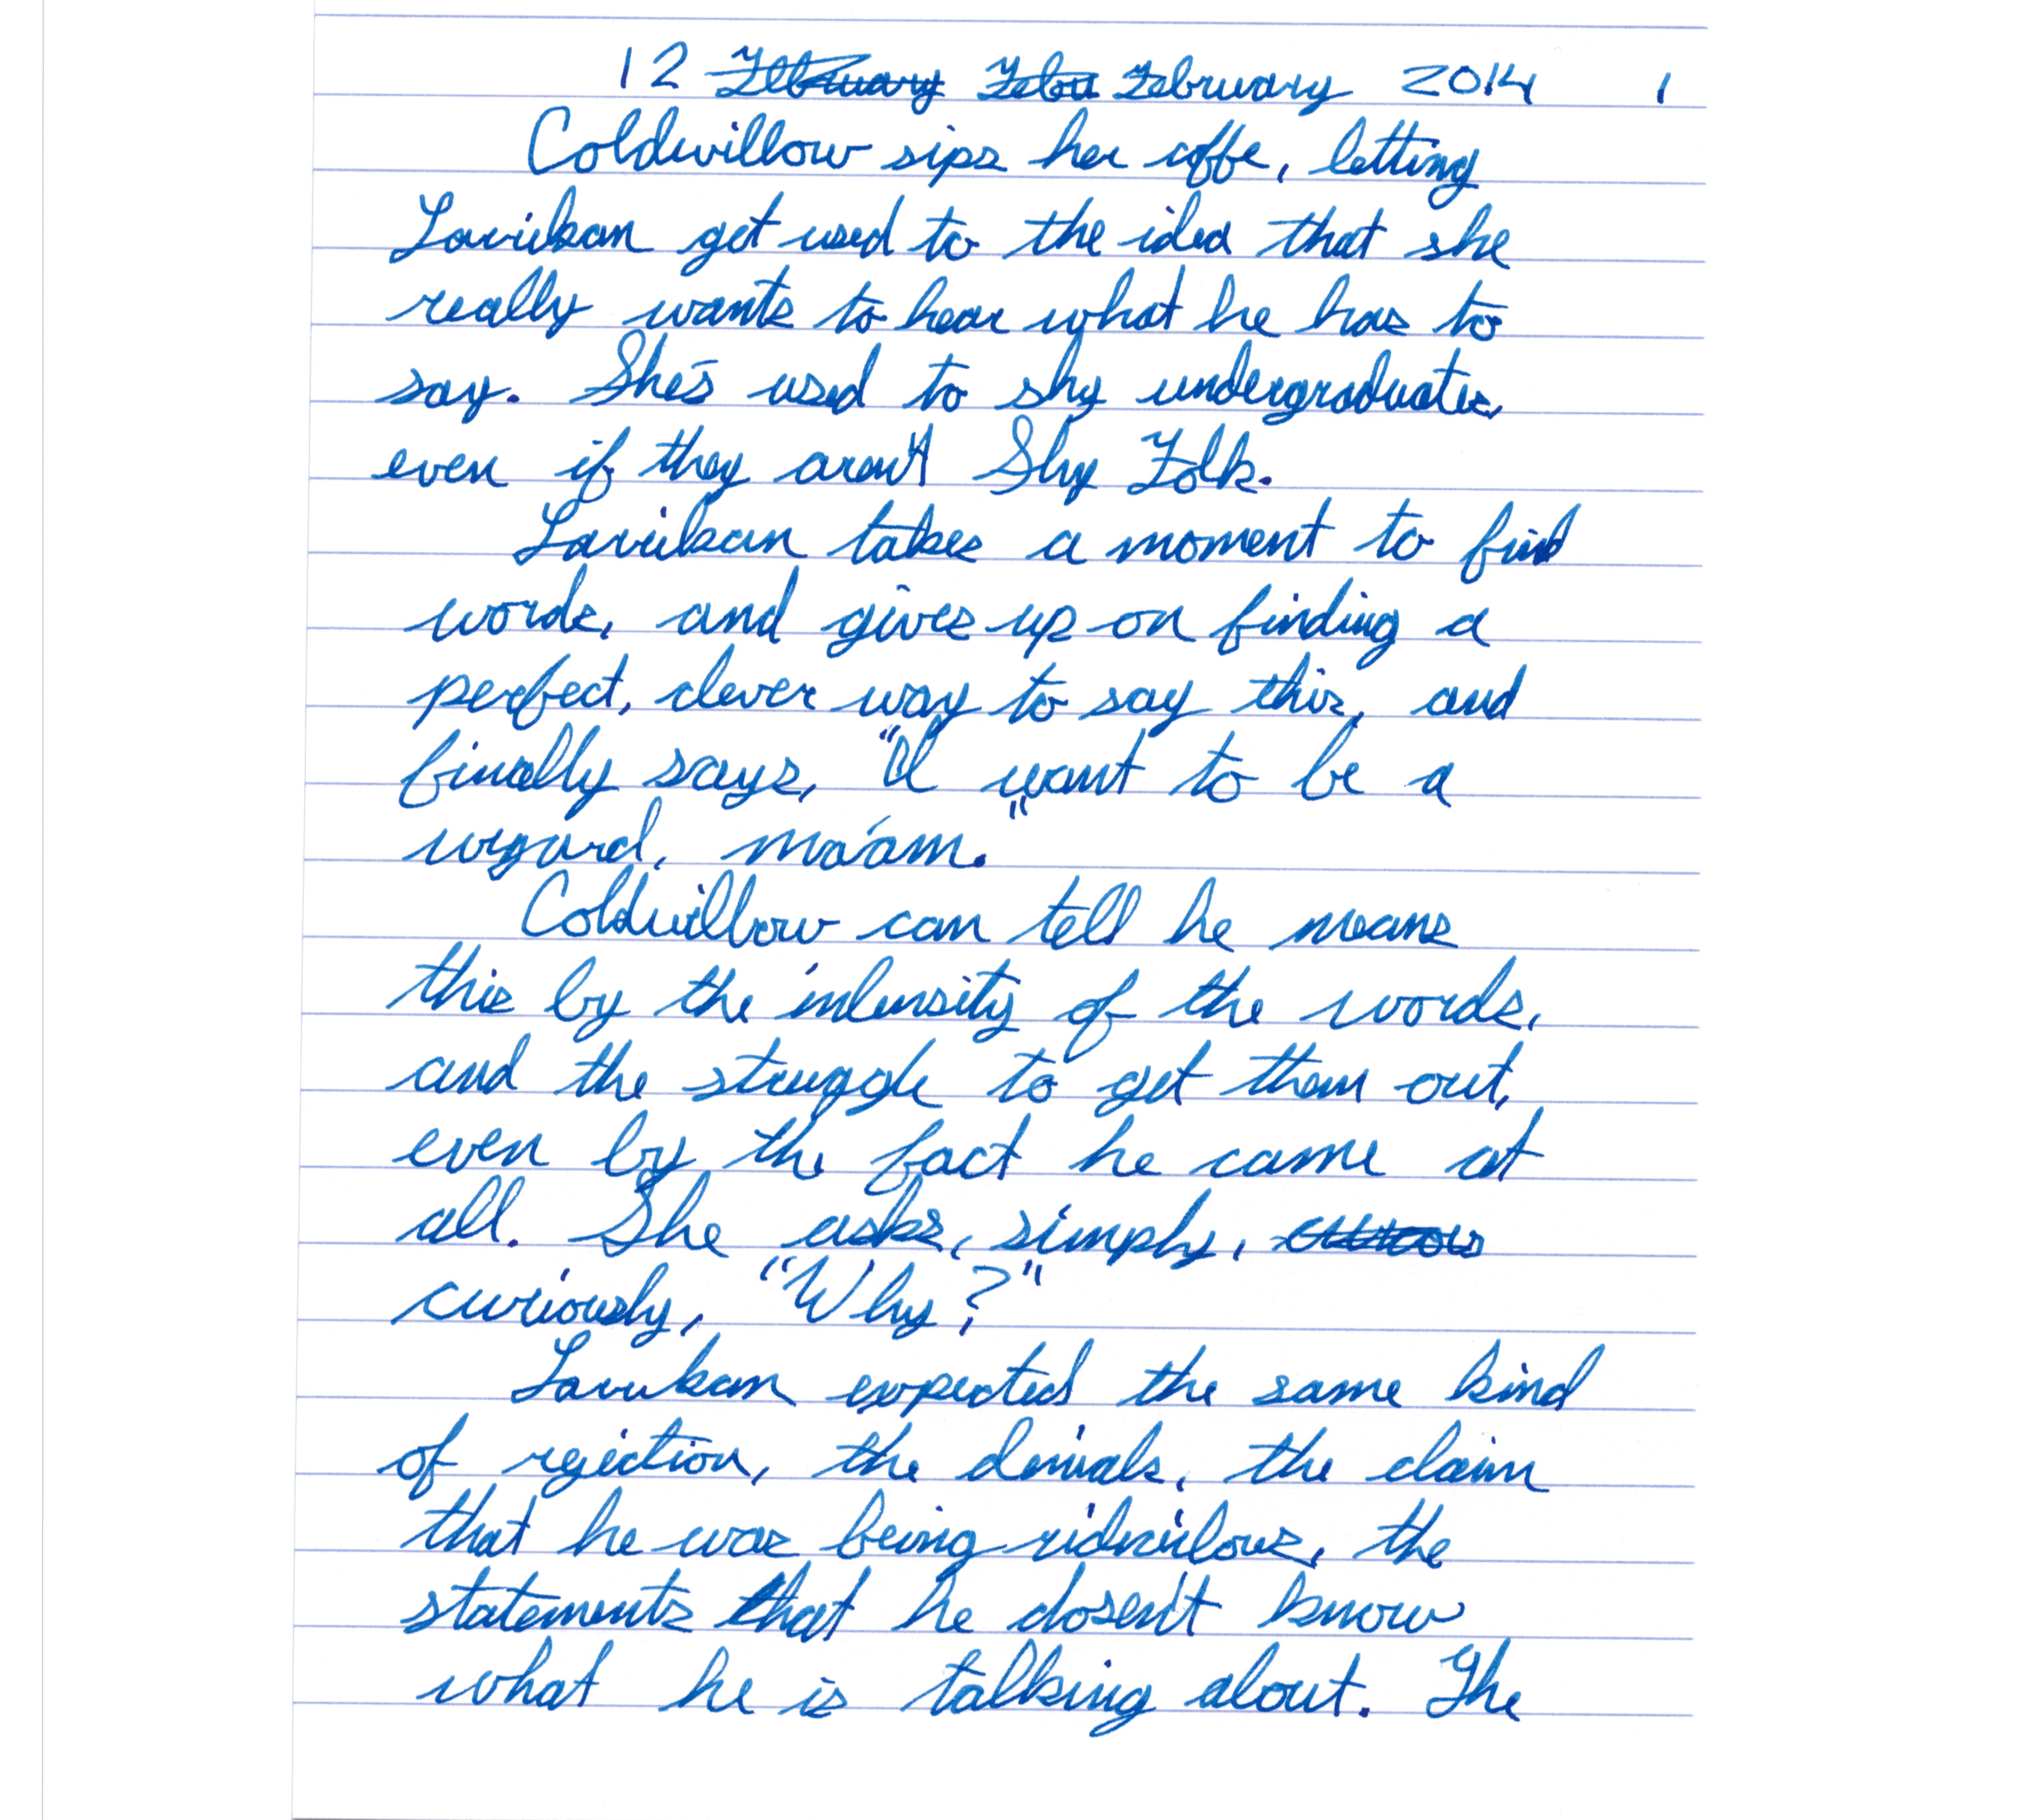 12 February Febu February 2014 1
Coldwillow sips her coffe, letting
Lavukan get used to the idea that she
really wants to hear what he has to
say. She's used to shy undergraduates,
even if they aren't Shy Folk.
Lavukan takes a moment to find
words, and gives up on finding a
perfect, clever way to say this, and
finally says, "I want to be a
wizard, ma'am."
Coldwillow can tell he means
this by the intensity of the words,
and the struggle to get them out,
even by the fact he came at
all. She asks, simply,
curiously, "Why?"
Lavukan expected the same kind
of rejection, the denials, the claim
that he was being ridiculous, the
statements that he dosen't know
what he is talking about. The